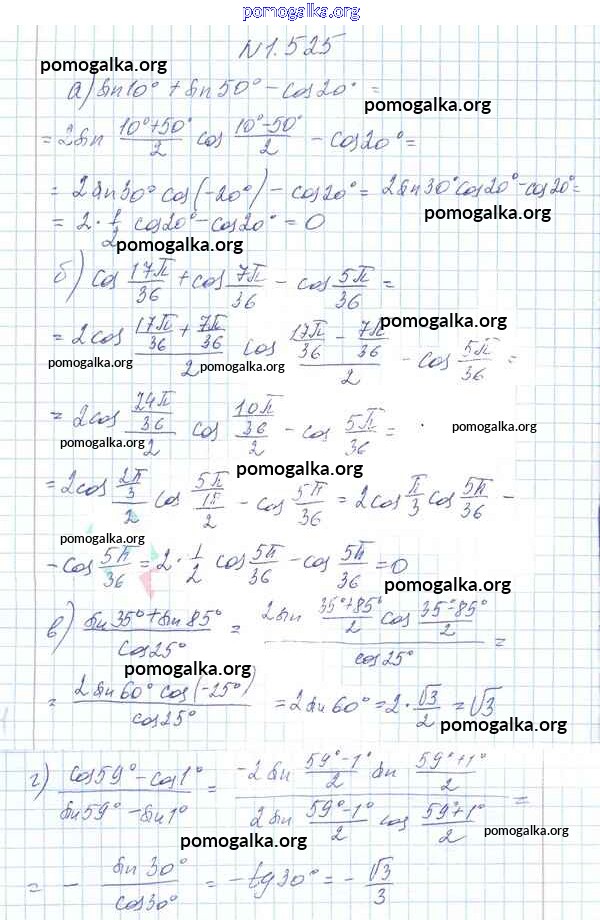 pomogalka.org
N1.525
pomogalka.org
а) sin10° + sin50° - cos20° =
pomogalka.org
= 2sin (10°+50°)/2 cos (10°-50°)/2 - cos20° =
pomogalka.org
= 2sin30° cos(-20°) - cos20° = 2sin30° cos20° - cos20° =
pomogalka.org
= 2 · 1/2 cos20° - cos20° = 0
pomogalka.org
б) cos 17π/36 + cos 7π/36 - cos 5π/36 =
pomogalka.org
= 2cos (17π/36 + 7π/36)/2 cos (17π/36 - 7π/36)/2 - cos 5π/36 =
pomogalka.org pomogalka.org
= 2cos (24π/36)/2 cos (10π/36)/2 - cos 5π/36 =
pomogalka.org pomogalka.org pomogalka.org
pomogalka.org
= 2cos (2π/3)/2 cos (5π/18)/2 - cos 5π/36 = 2cos π/3 cos 5π/36 -
pomogalka.org
- cos 5π/36 = 2 · 1/2 cos 5π/36 - cos 5π/36 = 0
pomogalka.org
в) (sin35° + sin85°)/cos25° = (2sin (35°+85°)/2 cos (35°-85°)/2)/cos25° =
pomogalka.org
= (2sin60° cos(-25°))/cos25° = 2sin60° = 2 · √3/2 = √3
pomogalka.org
г) (cos59° - cos1°)/(sin59° - sin1°) = (-2sin (59°-1°)/2 sin (59°+1°)/2)/(2sin (59°-1°)/2 cos (59°+1°)/2) =
pomogalka.org
pomogalka.org
= - sin30°/cos30° = - tg30° = - √3/3
pomogalka.org